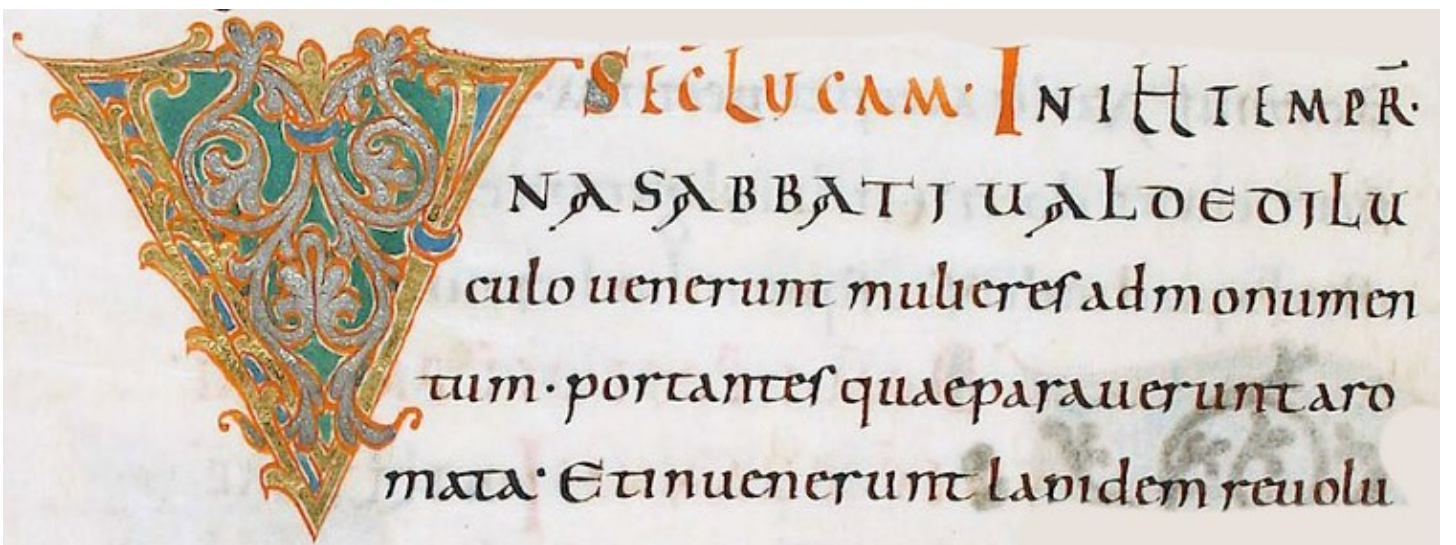 SEC̄ LUCAM· IN IH̄ TEMPR̄·
VNA SABBATI UALDE DILU
culo uenerunt mulieres ad monumen
tum· portantes quae parauerunt aro
mata· Et inuenerunt lapidem reuolu